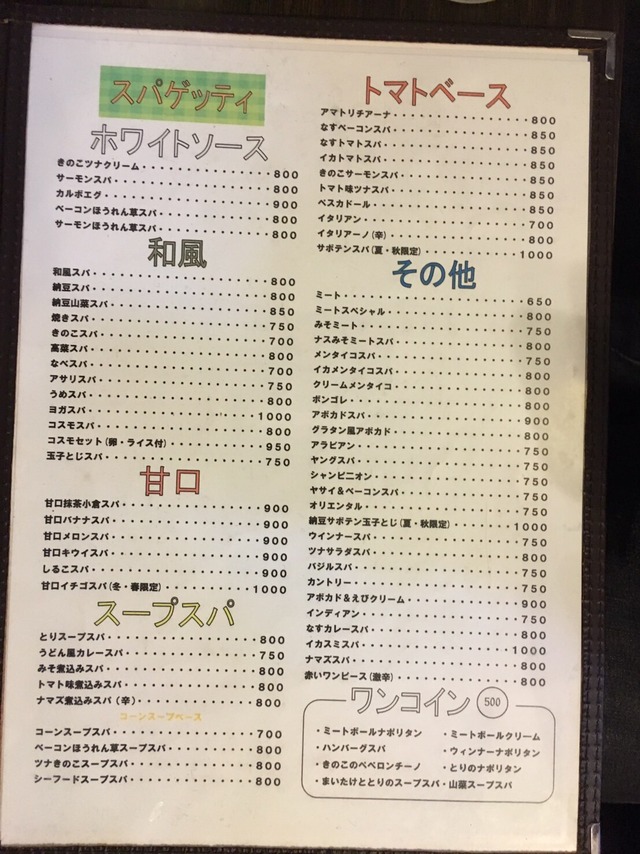 スパゲッティ
ホワイトソース
きのこツナクリーム・・・・・・・・・・・・・・・800
サーモンスパ・・・・・・・・・・・・・・・・・・800
カルボエグ・・・・・・・・・・・・・・・・・・・900
ベーコンほうれん草スパ・・・・・・・・・・・・・800
サーモンほうれん草スパ・・・・・・・・・・・・・800
和風
和風スパ・・・・・・・・・・・・・・・・・・・・800
納豆スパ・・・・・・・・・・・・・・・・・・・・800
納豆山菜スパ・・・・・・・・・・・・・・・・・・850
焼きスパ・・・・・・・・・・・・・・・・・・・・750
きのこスパ・・・・・・・・・・・・・・・・・・・700
高菜スパ・・・・・・・・・・・・・・・・・・・・800
なべスパ・・・・・・・・・・・・・・・・・・・・700
アサリスパ・・・・・・・・・・・・・・・・・・・750
うめスパ・・・・・・・・・・・・・・・・・・・・800
ヨガスパ・・・・・・・・・・・・・・・・・・・・1000
コスモスパ・・・・・・・・・・・・・・・・・・・800
コスモセット(卵・ライス付)・・・・・・・・・・・950
玉子とじスパ・・・・・・・・・・・・・・・・・・750
甘口
甘口抹茶小倉スパ・・・・・・・・・・・・・・・・900
甘口バナナスパ・・・・・・・・・・・・・・・・・900
甘口メロンスパ・・・・・・・・・・・・・・・・・900
甘口キウイスパ・・・・・・・・・・・・・・・・・900
しるこスパ・・・・・・・・・・・・・・・・・・・900
甘口イチゴスパ(冬・春限定)・・・・・・・・・・・1000
スープスパ
とりスープスパ・・・・・・・・・・・・・・・・・800
うどん風カレースパ・・・・・・・・・・・・・・・750
みそ煮込みスパ・・・・・・・・・・・・・・・・・800
トマト味煮込みスパ・・・・・・・・・・・・・・・800
ナマズ煮込みスパ(辛)・・・・・・・・・・・・・・800
コーンスープベース
コーンスープスパ・・・・・・・・・・・・・・・・700
ベーコンほうれん草スープスパ・・・・・・・・・・800
ツナきのこスープスパ・・・・・・・・・・・・・・800
シーフードスープスパ・・・・・・・・・・・・・・800
トマトベース
アマトリチアーナ・・・・・・・・・・・・・・・・800
なすベーコンスパ・・・・・・・・・・・・・・・・850
なすトマトスパ・・・・・・・・・・・・・・・・・850
イカトマトスパ・・・・・・・・・・・・・・・・・850
きのこサーモンスパ・・・・・・・・・・・・・・・850
トマト味ツナスパ・・・・・・・・・・・・・・・・850
ペスカドール・・・・・・・・・・・・・・・・・・850
イタリアン・・・・・・・・・・・・・・・・・・・700
イタリアーノ(辛)・・・・・・・・・・・・・・・・800
サボテンスパ(夏・秋限定)・・・・・・・・・・・・1000
その他
ミート・・・・・・・・・・・・・・・・・・・・・650
ミートスペシャル・・・・・・・・・・・・・・・・800
みそミート・・・・・・・・・・・・・・・・・・・750
ナスみそミートスパ・・・・・・・・・・・・・・・800
メンタイコスパ・・・・・・・・・・・・・・・・・750
イカメンタイコスパ・・・・・・・・・・・・・・・800
クリームメンタイコ・・・・・・・・・・・・・・・800
ボンゴレ・・・・・・・・・・・・・・・・・・・・800
アボカドスパ・・・・・・・・・・・・・・・・・・900
グラタン風アボカド・・・・・・・・・・・・・・・800
アラビアン・・・・・・・・・・・・・・・・・・・750
ヤングスパ・・・・・・・・・・・・・・・・・・・750
シャンピニオン・・・・・・・・・・・・・・・・・750
ヤサイ&ベーコンスパ・・・・・・・・・・・・・・750
オリエンタル・・・・・・・・・・・・・・・・・・750
納豆サボテン玉子とじ(夏・秋限定)・・・・・・・・1000
ウインナースパ・・・・・・・・・・・・・・・・・750
ツナサラダスパ・・・・・・・・・・・・・・・・・800
バジルスパ・・・・・・・・・・・・・・・・・・・750
カントリー・・・・・・・・・・・・・・・・・・・750
アボカド&えびクリーム・・・・・・・・・・・・・900
インディアン・・・・・・・・・・・・・・・・・・750
なすカレースパ・・・・・・・・・・・・・・・・・800
イカスミスパ・・・・・・・・・・・・・・・・・・1000
ナマズスパ・・・・・・・・・・・・・・・・・・・800
赤いワンピース(激辛)・・・・・・・・・・・・・・800
ワンコイン 500
・ミートボールナポリタン ・ミートボールクリーム
・ハンバーグスパ ・ウィンナーナポリタン
・きのこのペペロンチーノ ・とりのナポリタン
・まいたけととりのスープスパ・山菜スープスパ